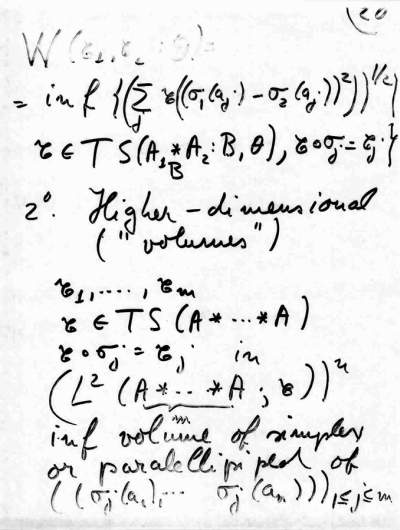 20
W(τ₁, τ₂ : θ) =
= inf {(Σ_j τ((σ₁(a_j) − σ₂(a_j))²))^{1/2} |
τ ∈ TS(A₁ *_B A₂ : B, θ), τ∘σ_j = τ_j}
2°. Higher-dimensional
("volumes")
τ₁, ..., τ_m
τ ∈ TS(A * ... * A)
τ∘σ_j = τ_j in
(L²(A * ... * A ; τ))ⁿ
m
inf volume of simplex
or parallelipiped of
((σ_j(a₁), ... σ_j(a_n)))_{1≤j≤m}